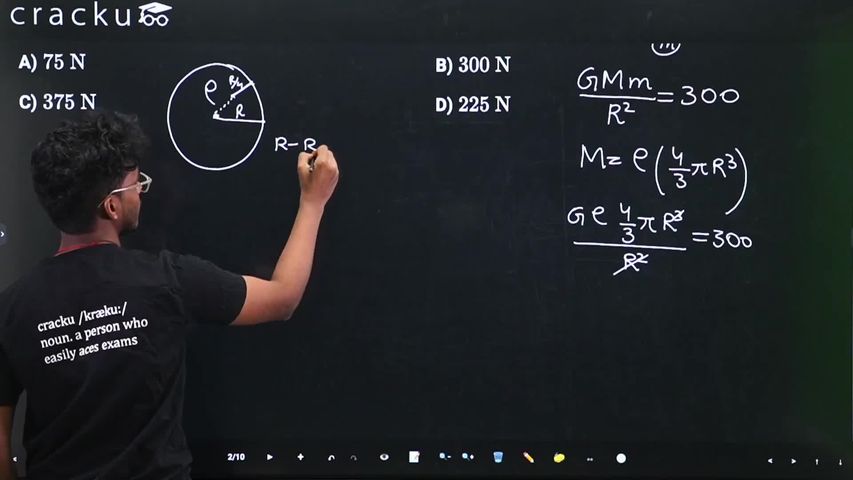 cracku
A) 75 N
B) 300 N
C) 375 N
D) 225 N
ρ R/4
R
R - R
m
GMm/R² = 300
M = ρ(4/3 πR³)
Gρ 4/3 πR³/R² = 300
cracku /kræku:/
noun. a person who
easily aces exams
2/10